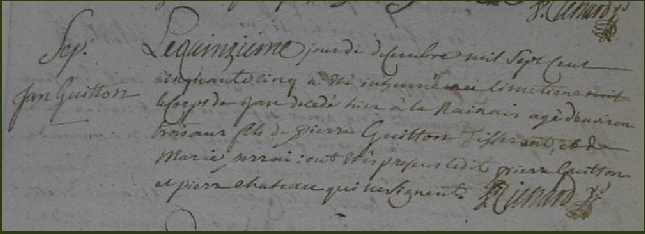 Sep.
Jan Guitton
Le quinzieme jour de decembre mil sept cent
cinquante cinq a été inhumé au cimetiere
le corps de Jan decedé hier à la Rainais agé d'environ
trois ans fils de pierre Guitton et de
Marie ont étés presens ledit pierre Guitton
et pierre chateau qui ne signent